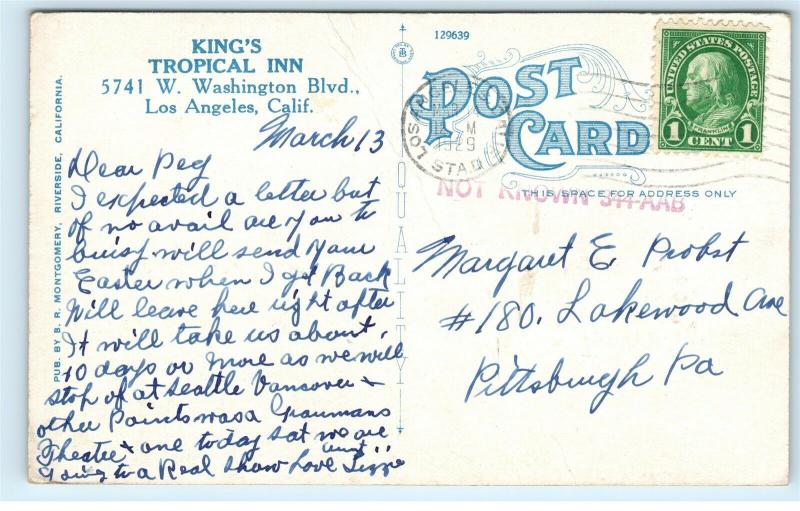 KING'S
TROPICAL INN
5741 W. Washington Blvd.,
Los Angeles, Calif.
March 13
Dear Peg
I expected a letter but
of no avail are you to
buisy will send your
Easter when I get Back
Will leave here right after
It will take us about
10 days or more as we will
stop of at Seattle Vancover &
other Points was a Graumans
Theatre & one today sat we are
going to a Real show Love Aunt Lizzie
PUB. BY B. R. MONTGOMERY, RIVERSIDE, CALIFORNIA.
QUALITY
129639
POST
CARD
LOS
M
1929
STA
UNITED STATES POSTAGE
FRANKLIN
1 CENT 1
NOT KNOWN 344-AAB
THIS SPACE FOR ADDRESS ONLY
Margaret E Probst
#180. Lakewood Ave
Pittsburgh Pa